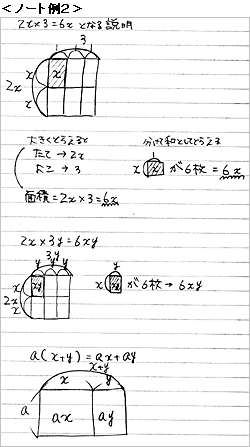 <ノート例2>
2x×3=6x となる説明
3
x x
2x
x
大きくとらえると
たて→2x
よこ→3
面積=2x×3=6x
分けて和としてとらえる
1
x x が6枚=6x
2x×3y=6xy
3y
y y y
x xy
2x
x
y
x xy が6枚→6xy
a(x+y)=ax+ay
x+y
x y
a ax ay